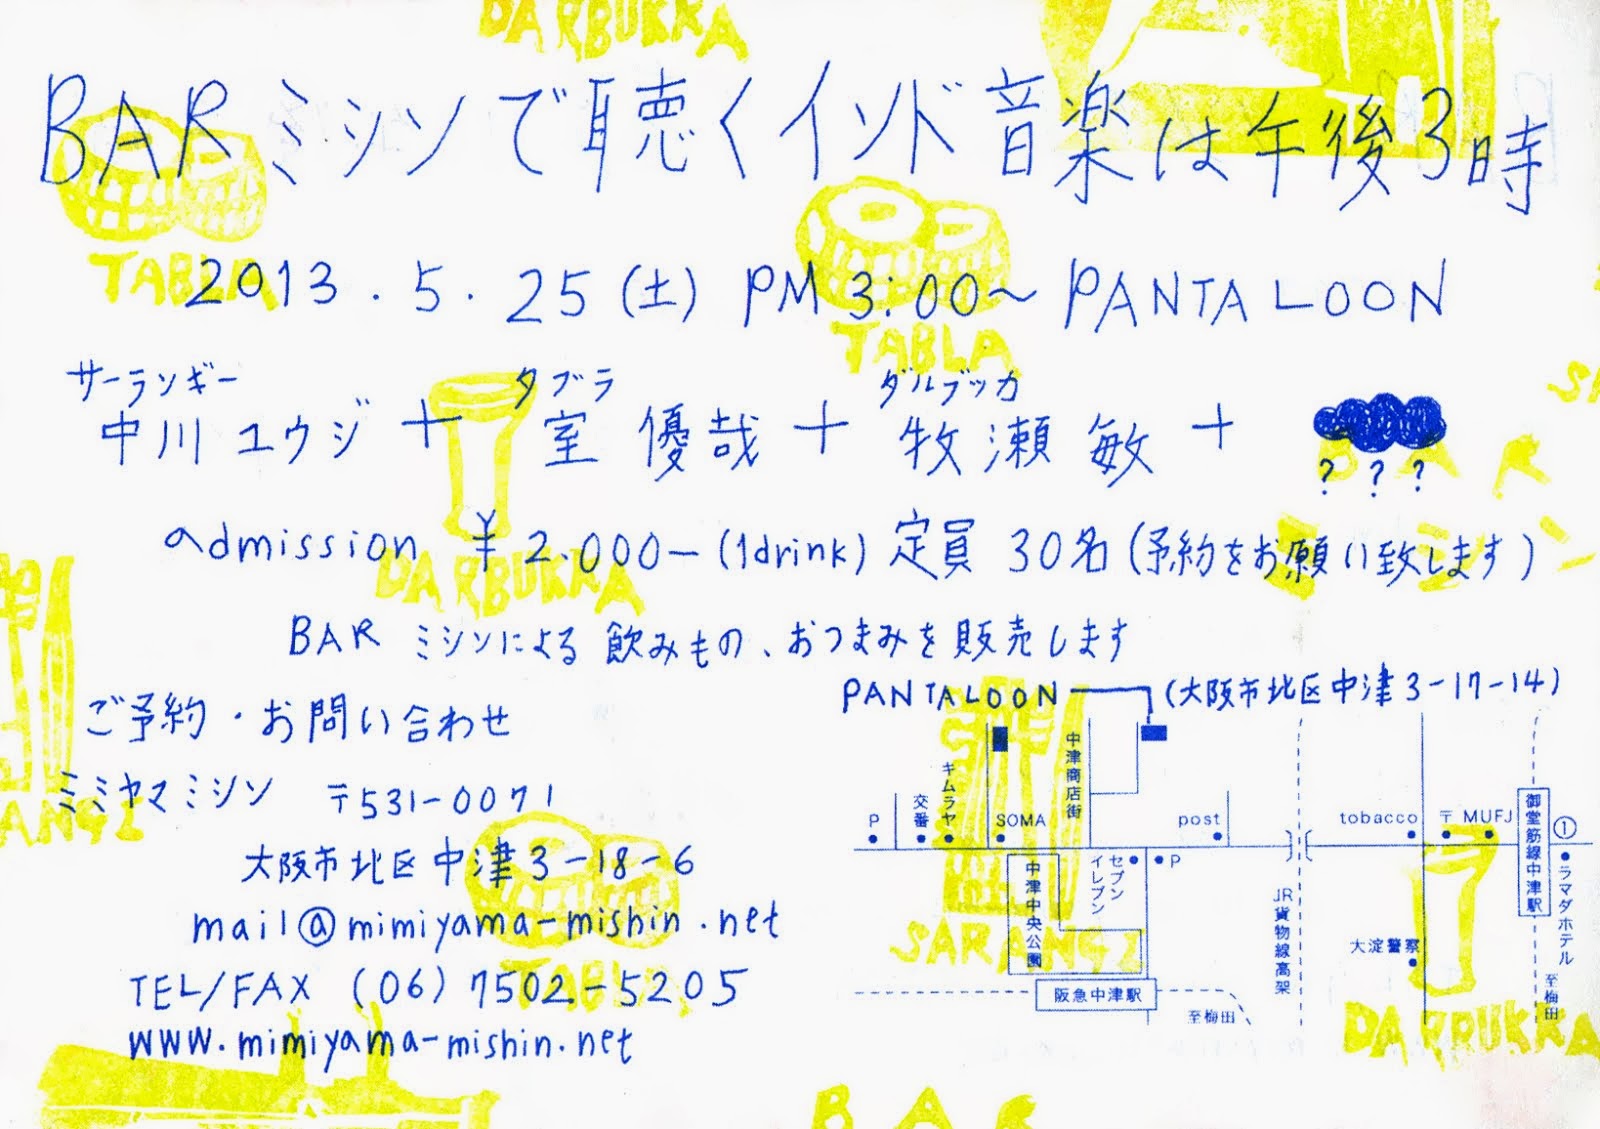 DARBUKKA
BARミシンで聴くインド音楽は午後3時
TABLA
2013.5.25(土) PM 3:00〜 PANTALOON
TABLA
サーランギー タブラ ダルブッカ
中川ユウジ + 室優哉 + 牧瀬敏 +
? ? ?
BAR
ミシン
admission ¥2.000— (1drink) 定員30名(予約をお願い致します)
DARBUKKA
BARミシンによる飲みもの、おつまみを販売します
ご予約・お問い合わせ
ミミヤマミシン 〒531-0071
大阪市北区中津3-18-6
mail@mimiyama-mishin.net
TABLA
TEL/FAX (06) 7502-5205
www.mimiyama-mishin.net
PANTALOON (大阪市北区中津3-17-14)
中津商店街
キムラヤ
交番
P
SOMA
post
tobacco
〒
MUFJ
御堂筋線中津駅
①
ラマダホテル
セブンイレブン
P
中津中央公園
JR貨物線高架
大淀警察
SARANGI
阪急中津駅
至梅田
至梅田
DARBUKKA
BAR